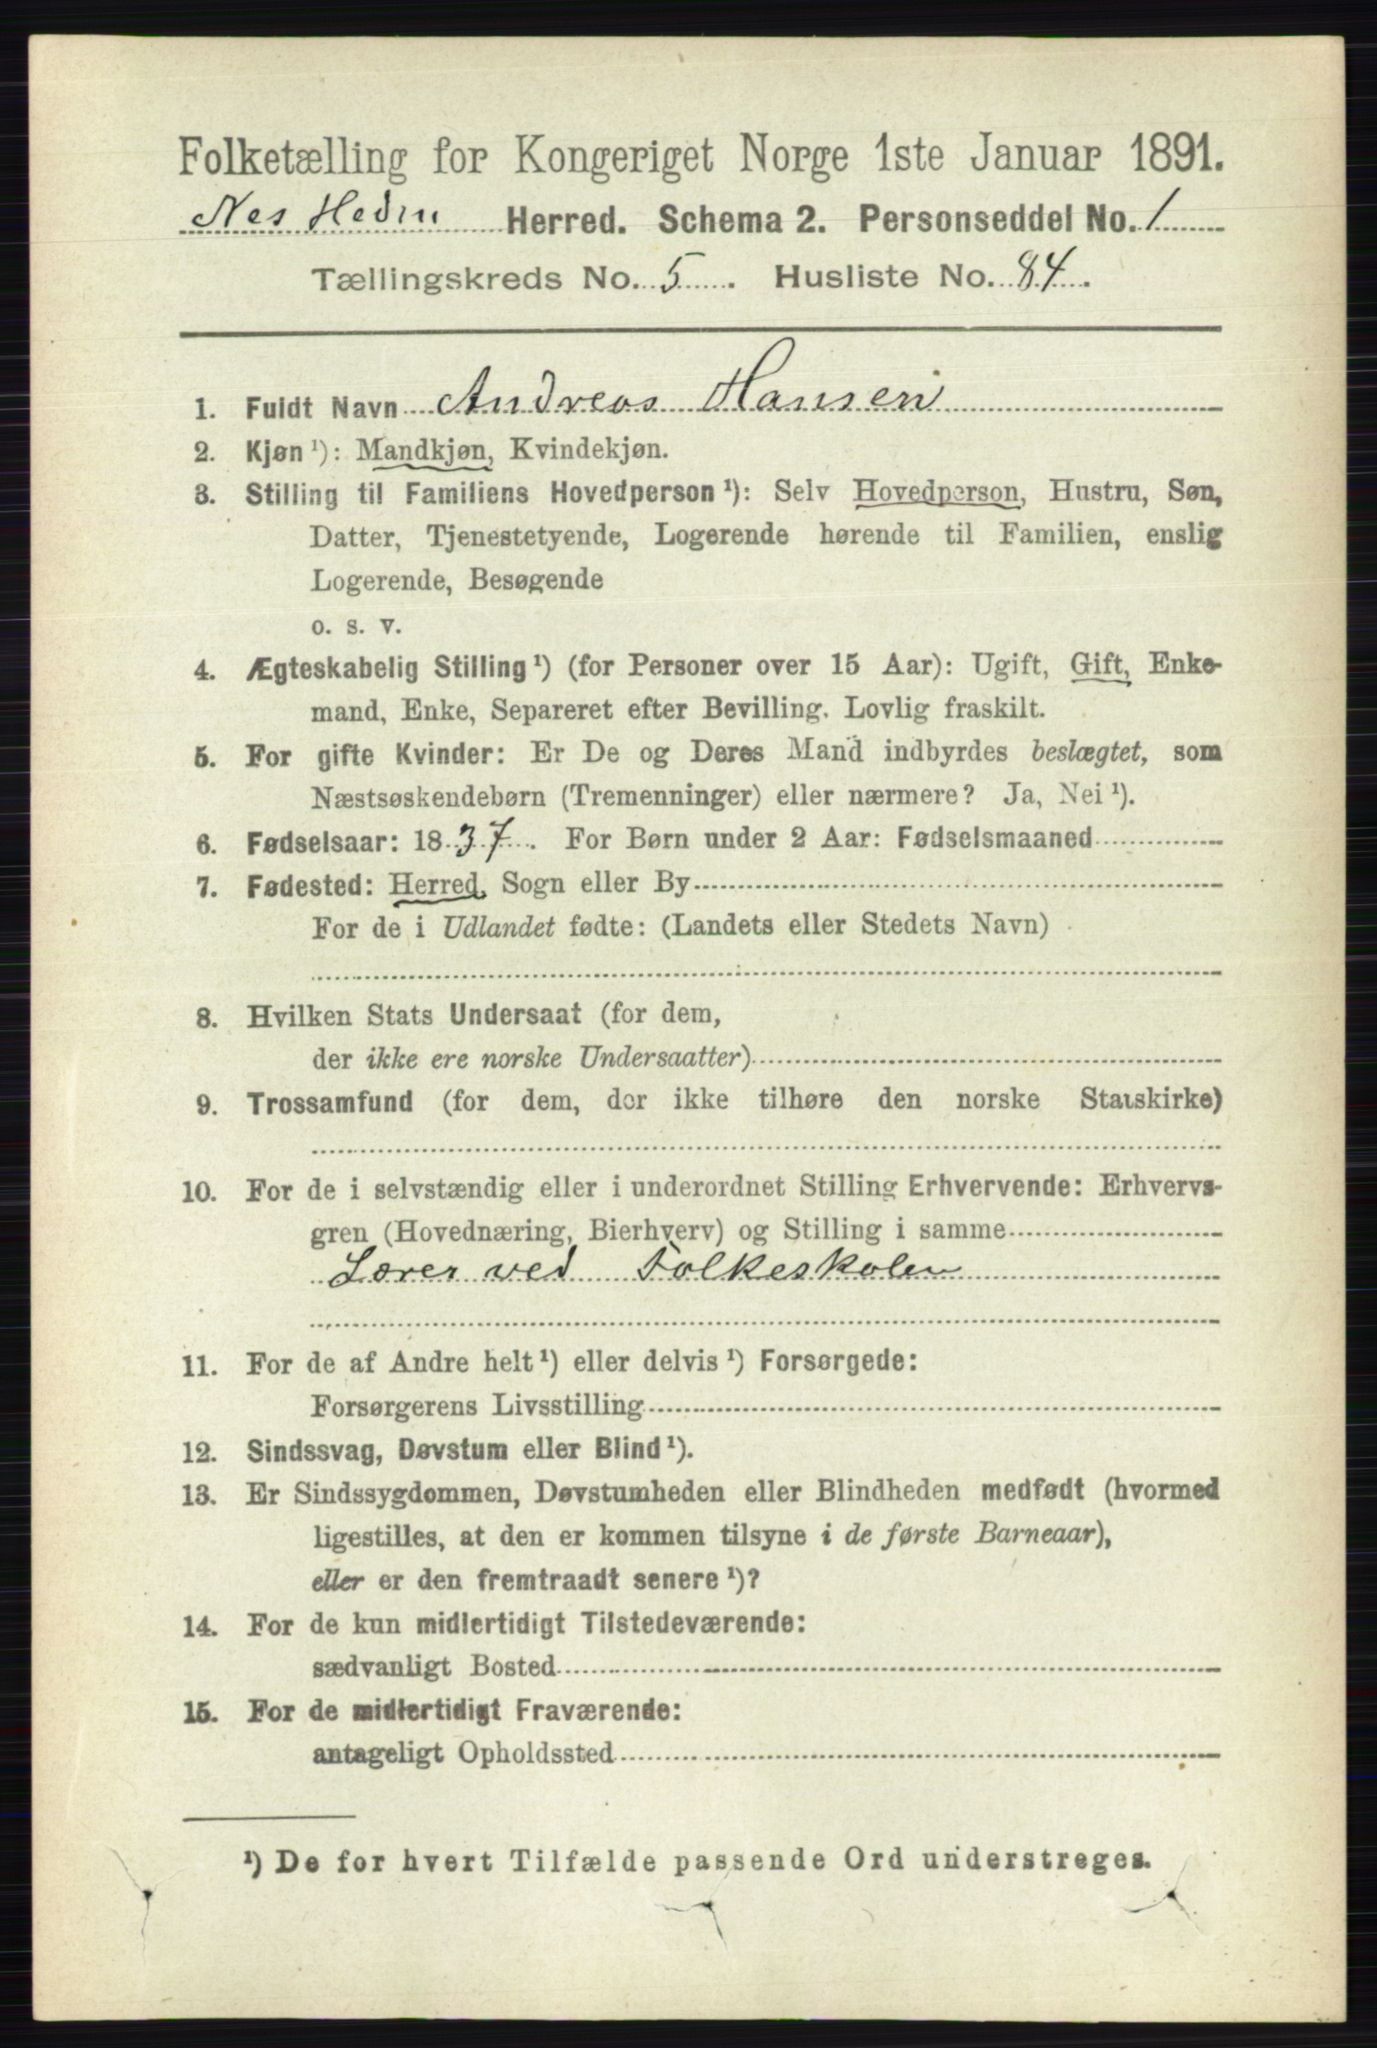 Folketælling for Kongeriget Norge 1ste Januar 1891.
Nes Hedm Herred. Schema 2. Personseddel No. 1
Tællingskreds No. 5. Husliste No. 84.
1. Fuldt Navn Andreas Hansen
2. Kjøn ¹): Mandkjøn, Kvindekjøn.
3. Stilling til Familiens Hovedperson ¹): Selv Hovedperson, Hustru, Søn,
Datter, Tjenestetyende, Logerende hørende til Familien, enslig
Logerende, Besøgende
o. s. v.
4. Ægteskabelig Stilling ¹) (for Personer over 15 Aar): Ugift, Gift, Enke-
mand, Enke, Separeret efter Bevilling. Lovlig fraskilt.
5. For gifte Kvinder: Er De og Deres Mand indbyrdes beslægtet, som
Næstsøskendebørn (Tremenninger) eller nærmere? Ja, Nei ¹).
6. Fødselsaar: 1837. For Børn under 2 Aar: Fødselsmaaned
7. Fødested: Herred, Sogn eller By
For de i Udlandet fødte: (Landets eller Stedets Navn)
8. Hvilken Stats Undersaat (for dem,
der ikke ere norske Undersaatter)
9. Trossamfund (for dem, der ikke tilhøre den norske Statskirke)
10. For de i selvstændig eller i underordnet Stilling Erhvervende: Erhvervs-
gren (Hovednæring, Bierhverv) og Stilling i samme
Lærer ved Folkeskolen
11. For de af Andre helt ¹) eller delvis ¹) Forsørgede:
Forsørgerens Livsstilling
12. Sindssvag, Døvstum eller Blind ¹).
13. Er Sindssygdommen, Døvstumheden eller Blindheden medfødt (hvormed
ligestilles, at den er kommen tilsyne i de første Barneaar),
eller er den fremtraadt senere ¹)?
14. For de kun midlertidigt Tilstedeværende:
sædvanligt Bosted
15. For de midlertidigt Fraværende:
antageligt Opholdssted
¹) De for hvert Tilfælde passende Ord understreges.